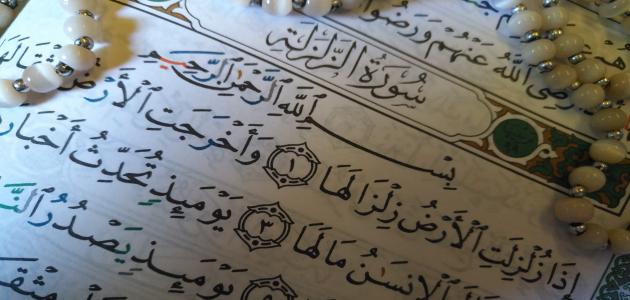 رَضِىَ اللَّهُ عَنْهُمْ وَرَضُوا
سُورَةُ الزَّلْزَلَةِ
بِسْمِ اللَّهِ الرَّحْمَٰنِ الرَّحِيمِ
إِذَا زُلْزِلَتِ الْأَرْضُ زِلْزَالَهَا ١ وَأَخْرَجَتِ الْأَرْضُ
الْإِنسَٰنُ مَا لَهَا ٣ يَوْمَئِذٍ تُحَدِّثُ أَخْبَارَ
يَوْمَئِذٍ يَصْدُرُ النَّ
مِثْقَ